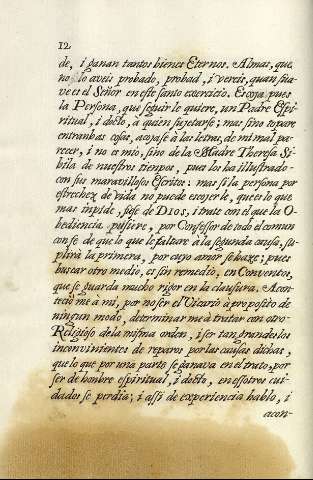 12
de, i ganan tantos bienes Eternos. Almas, que
no lo aveis probado, probad, i vereis, quan sua-
ve es el Señor en este santo exercicio. Escoja pues
la Persona, que seguirle quiere, un Padre Espi-
ritual, i docto, à quien sujetarse; mas sino topare
entranbas cosas, acojase à las letras, de mi mal pa-
recer, i no es mio, sino de la Madre Theresa Si-
bila de nuestros tienpos, pues los ha illustrado
con sus maravillosos Escritos: mas si la persona por
estrechez de vida no puede escojerle, que es lo que
mas inpide, fiese de DIOS, i trate con el que la O-
bediencia pusiere, por Confessor de todo el comun
con fe de que lo que le faltare à la segunda causa, su-
plirà la primera, por cuyo amor se haze; pues
buscar otro medio, es sin remedio, en Conventos,
que se guarda mucho rigor en la clausura. Acon-
teciò me à mi, por no ser el Vicario à proposito de
ningun modo, determinarme à tratar con otro
Religioso de la misma orden, i ser tan grandes los
inconvinientes de reparos por las causas dichas,
que lo que por una parte se ganava en el trato, por
ser de honbre espiritual, i docto, en essotros cui-
dados se perdia; i assi de experiencia hablo, i
acon-